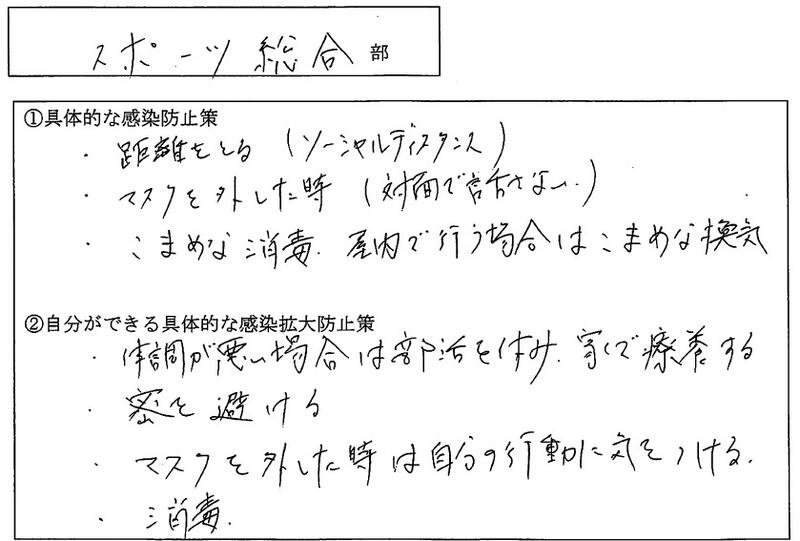 スポーツ総合部
①具体的な感染防止策
・距離をとる（ソーシャルディスタンス）
・マスクを外した時（対面で話さない.）
・こまめな消毒.屋内で行う場合はこまめな換気
②自分ができる具体的な感染拡大防止策
・体調が悪い場合は部活を休み.家で療養する
・密を避ける
・マスクを外した時は自分の行動に気をつける.
・消毒.